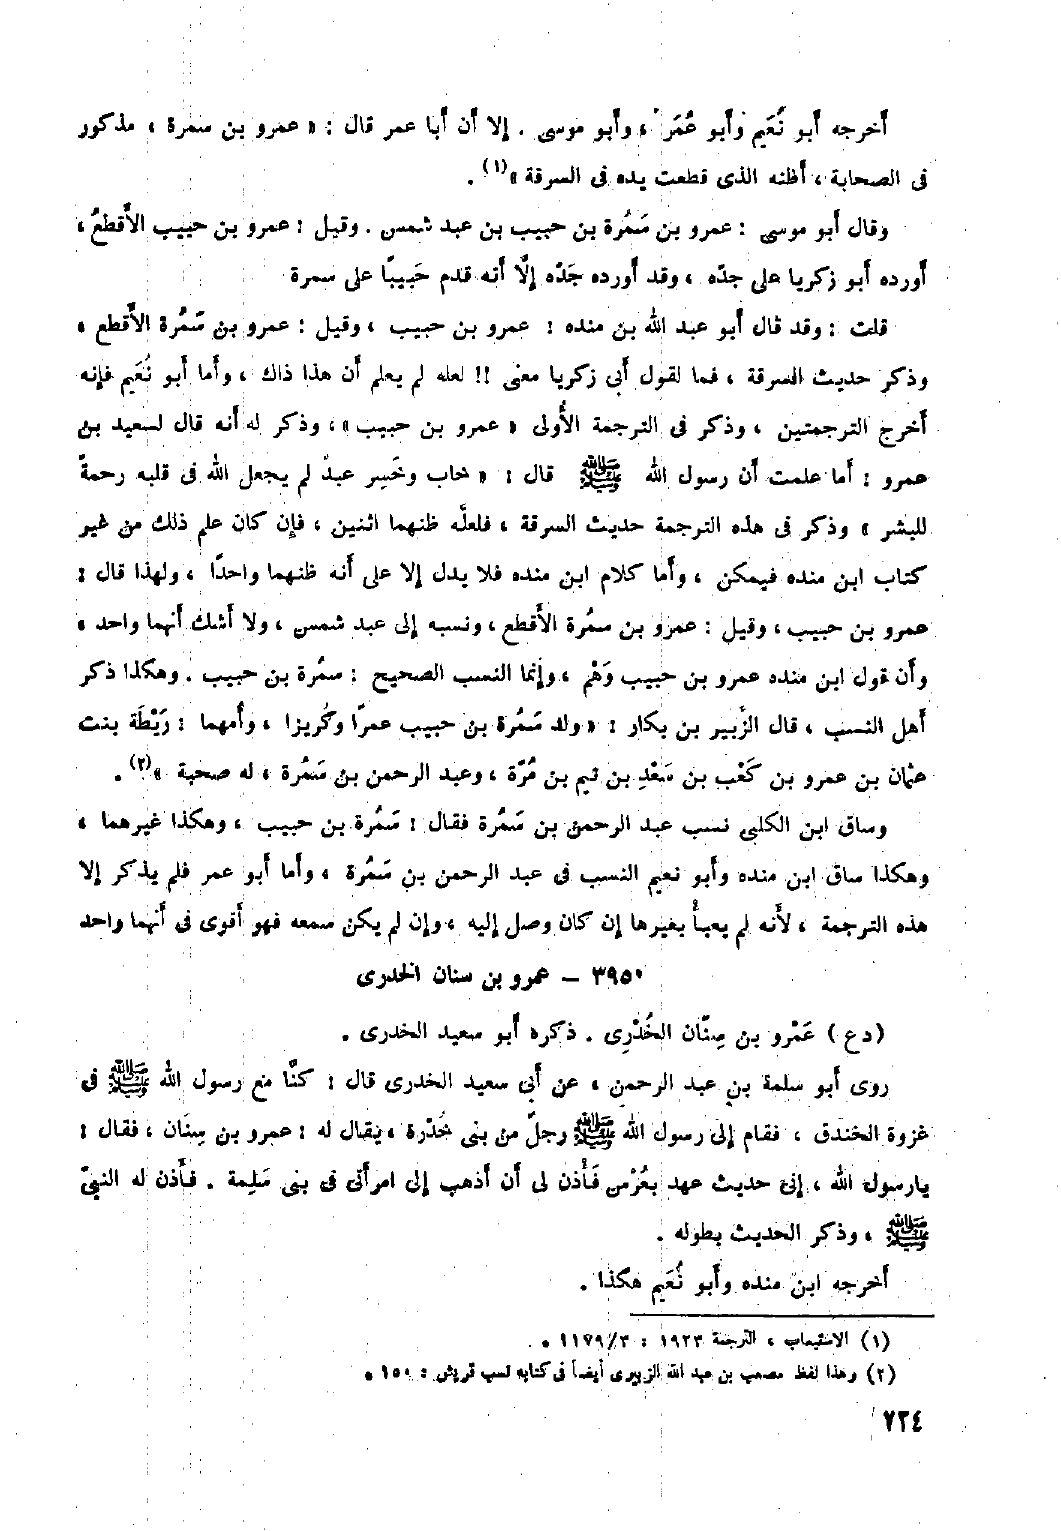 أخرجه أبو نُعَيم وأبو عُمَر ، وأبو موسى . إلا أن أبا عمر قال : « عمرو بن سمرة ، مذكور
فى الصحابة ، أظنه الذى قطعت يده فى السرقة »(١) .
وقال أبو موسى : عمرو بن سَمُرة بن حبيب بن عبد شمس . وقيل : عمرو بن حبيب الأقطعُ ،
أورده أبو زكريا على جدّه ، وقد أورده جَدّه إلَّا أنه قدم حَبيبًا على سمرة
قلت : وقد قال أبو عبد الله بن منده : عمرو بن حبيب ، وقيل : عمرو بن سَمُرة الأقطع ،
وذكر حديث السرقة ، فما لقول أبى زكريا معنى !! لعله لم يعلم أن هذا ذاك ، وأما أبو نُعَيم فإنه
أخرج الترجمتين ، وذكر فى الترجمة الأُولى « عمرو بن حبيب » ، وذكر له أنه قال لسعيد بن
عمرو : أما علمت أن رسول الله ﷺ قال : « خاب وخَسِر عبدٌ لم يجعل الله فى قلبه رحمةً
للبشر » وذكر فى هذه الترجمة حديث السرقة ، فلعلَّه ظنهما اثنين ، فإن كان علم ذلك من غير
كتاب ابن منده فيمكن ، وأما كلام ابن منده فلا يدل إلا على أنه ظنهما واحدًا ، ولهذا قال :
عمرو بن حبيب ، وقيل : عمرو بن سمُرة الأقطع ، ونسبه إلى عبد شمس ، ولا أشك أنهما واحد ،
وأن قول ابن منده عمرو بن حبيب وَهْم ، وإنما النسب الصحيح : سمُرة بن حبيب . وهكذا ذكر
أهل النسب ، قال الزُّبير بن بكار : « ولد سَمُرة بن حبيب عمرًا وكُريزا ، وأمهما : رَيْطَة بنت
عثمان بن عمرو بن كَعْب بن سَعْدِ بن تيم بن مُرّة ، وعبد الرحمن بن سَمُرة ، له صحبة »(٢) .
وساق ابن الكلبى نسب عبد الرحمن بن سَمُرة فقال : سَمُرة بن حبيب ، وهكذا غيرهما ،
وهكذا ساق ابن منده وأبو نعيم النسب فى عبد الرحمن بن سَمُرة ، وأما أبو عمر فلم يذكر إلا
هذه الترجمة ، لأَنه لم يعبأْ بغيرها إن كان وصل إليه ، وإن لم يكن سمعه فهو أقوى فى أنهما واحد
٣٩٥٠ – عمرو بن سنان الخدرى
( د ع ) عَمْرو بن سِنَان الخُدْرِى . ذكره أبو سعيد الخدرى .
روى أبو سلمة بن عبد الرحمن ، عن أبى سعيد الخدرى قال : كنَّا مع رسول الله ﷺ فى
غزوة الخندق ، فقام إلى رسول الله ﷺ رجلٌ من بنى خُدْرة ، يقال له : عمرو بن سِنَان ، فقال :
يارسول الله ، إنى حديث عهد بعُرْس فَأْذن لى أن أذهب إلى امرأتى فى بنى سَلِمة . فأَذن له النبىّ
ﷺ ، وذكر الحديث بطوله .
أخرجه ابن منده وأبو نُعَيم هكذا .
(١) الاستيعاب ، الترجمة ١٩٢٣ : ١١٧٩/٣ .
(٢) وهذا لفظ مصعب بن عبد الله الزبيرى أيضاً فى كتابه نسب قريش : ١٥٠ .
٧٣٤